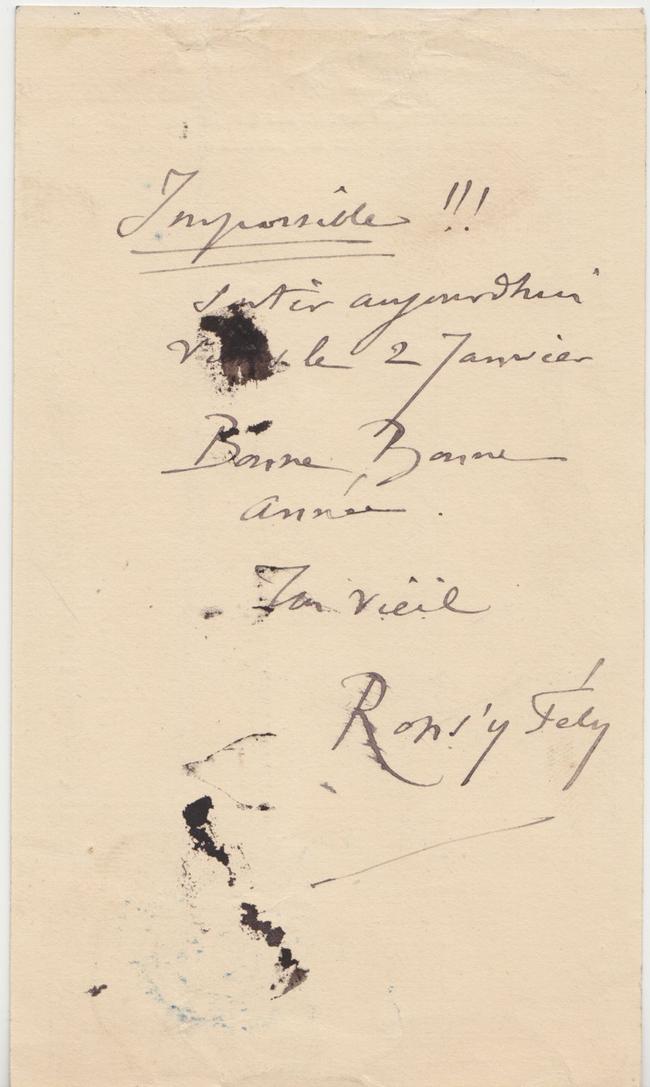 Impossible !!!
sortir aujourdhui
le 2 Janvier
Bonne, Bonne
année.
Ton vieil
Rops'y Fély